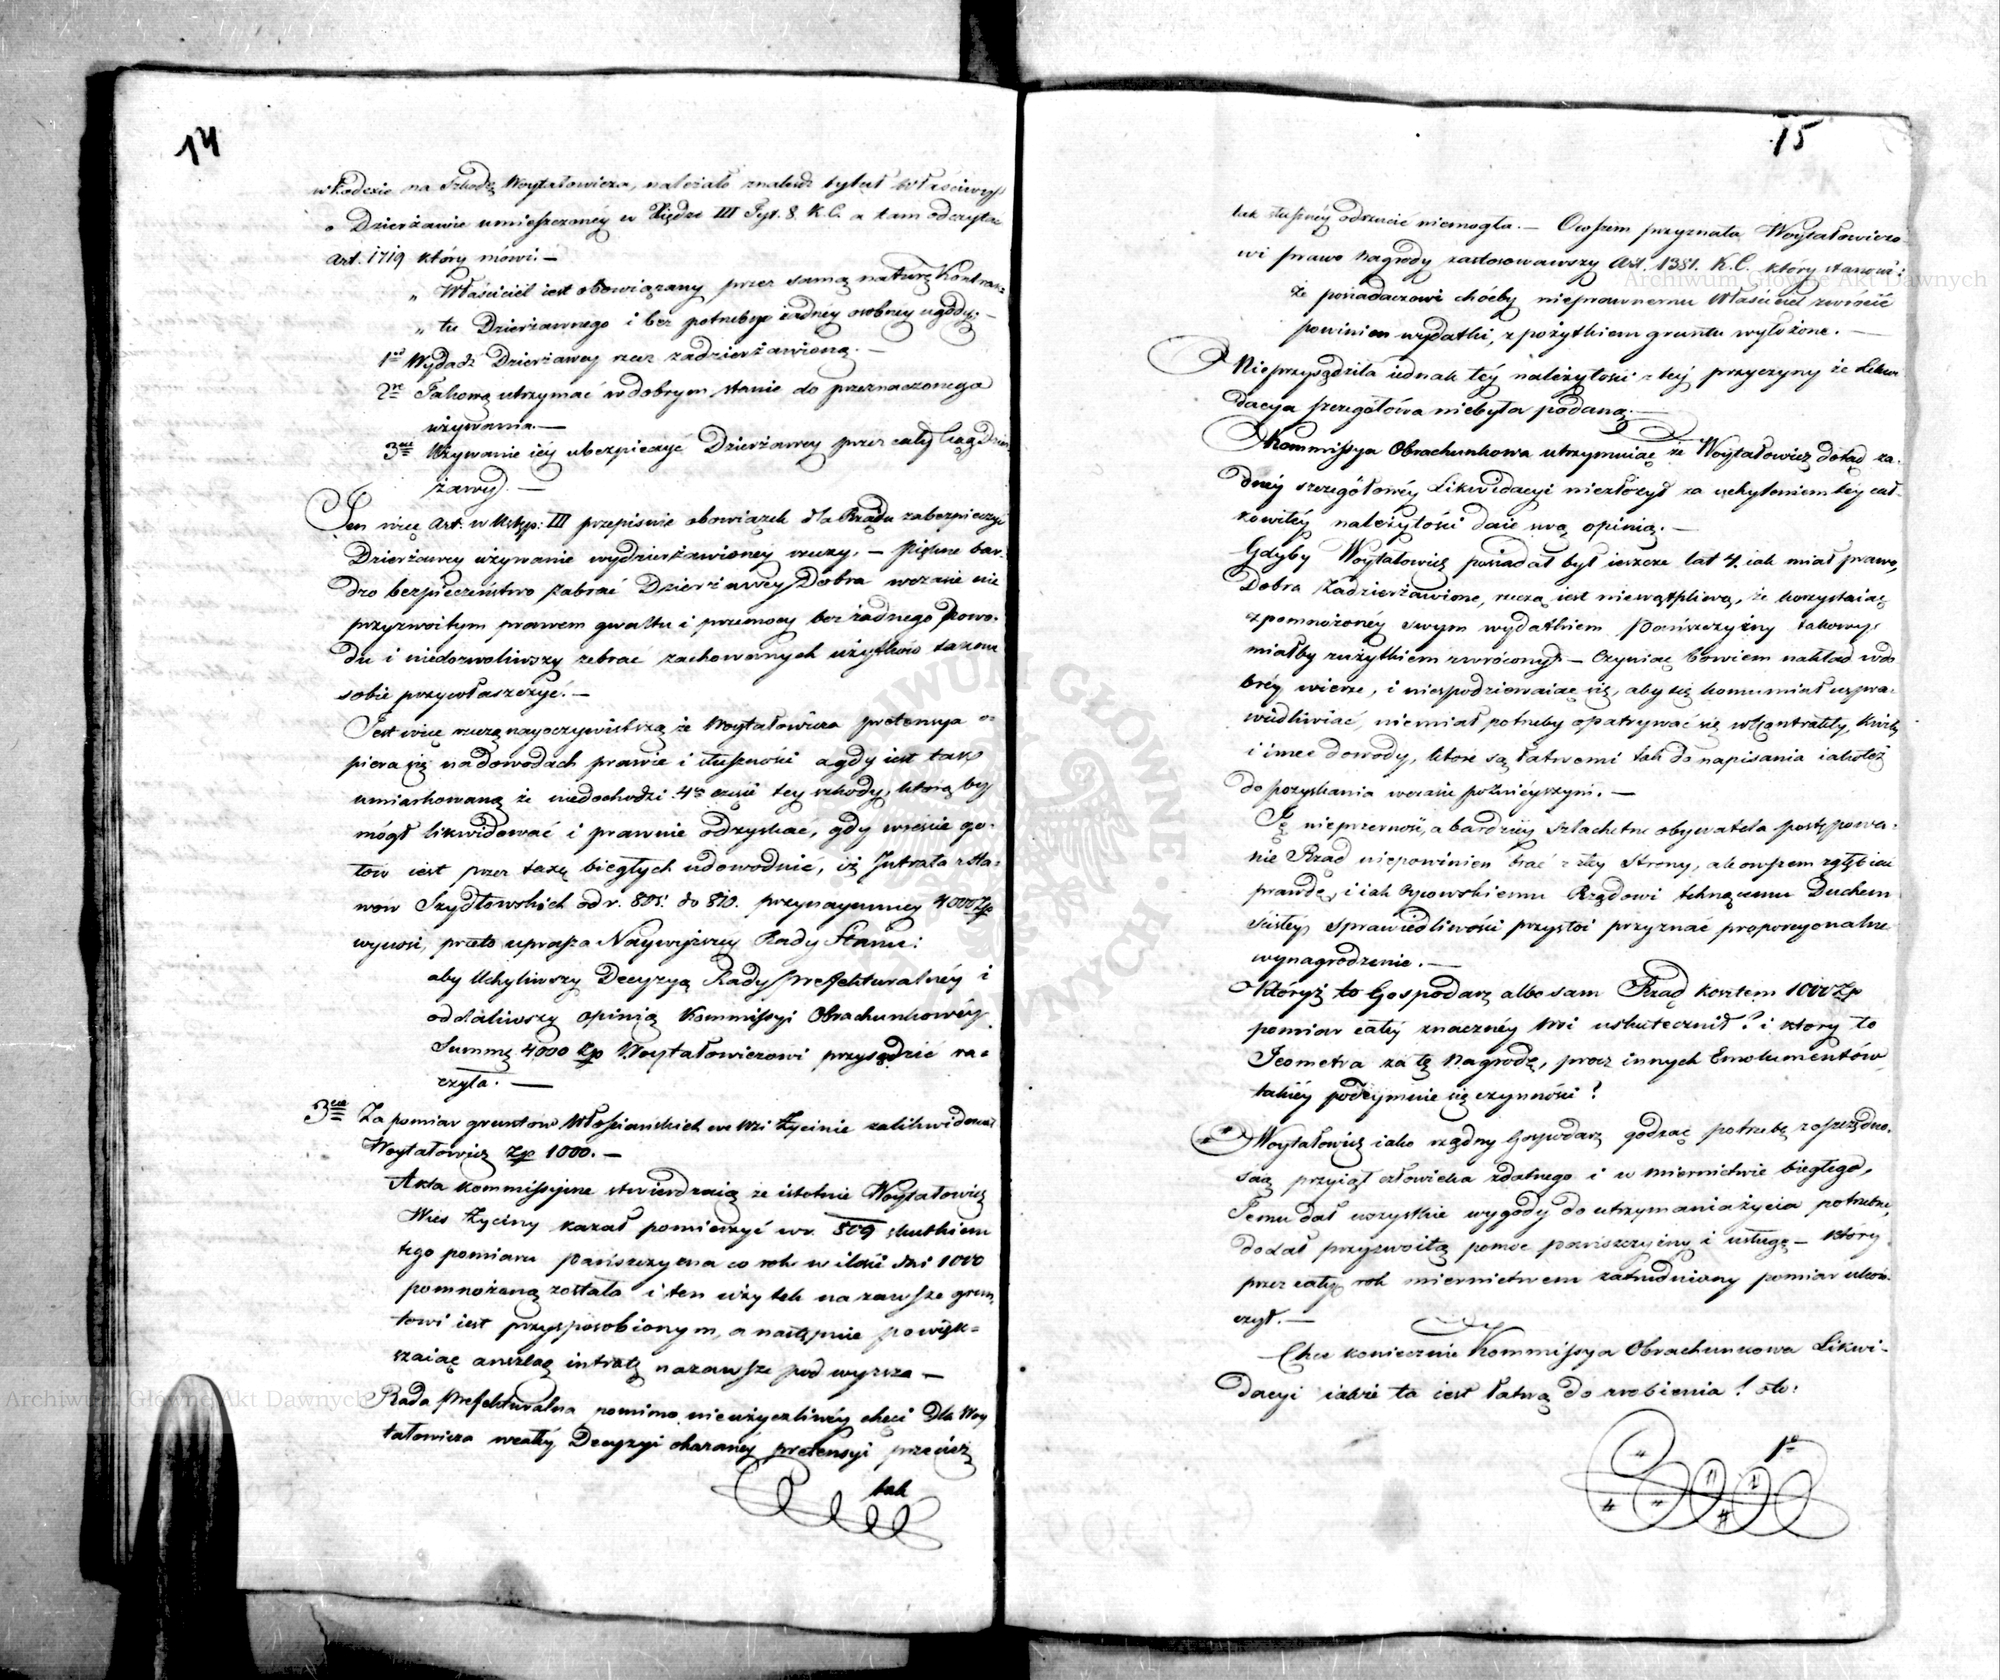 14
w Kodexie na Szkodę Woytałowicza, należało znaleść tytuł właściwy
o Dzierżawie umieszczoney w Xiędze III Tyt. 8. K.C. a tam odczytać
Art. 1719 który mówi: —
„ Właściciel iest obowiązany przez samą naturę Kontrak=
„ tu Dzierżawnego i bez potrzeby żadnéy osobnéy ugody: —
1od Wydadź Dzierżawcy rzecz zadzierżawioną. —
2re Takową utrzymać w dobrym stanie do przeznaczonego
używania. —
3cie Używanie iéy ubezpieczyć Dzierżawcy przez cały Ciąg Dzier
żawy. —
Ten więc Art: w Ustęp: III przepisuie obowiązek dla Rządu zabezpieczyć
Dzierżawcy używanie wydzierżawioney rzeczy. — Piękne bar=
dzo bezpieczeństwo zabrać Dzierżawcy Dobra w czasie nie
przyzwoitym prawem gwałtu i przemocy bez żadnego powo=
du i niedozwoliwszy zebrać zachowanych użytków takowe
sobie przywłaszczyć. —
Jest więc rzeczą nayoczywistszą że Woytałowicza pretensya o=
piera się na dowodach prawie i słuszności a gdy iest tak
umiarkowaną że niedochodzi 4éy części tey szkody, którą by
mógł likwidować i prawnie odzyskać, gdy wreście go=
tów iest przez taxę biegłych udowodnić, iż Intrata z Sta=
wów Szydłowskich od r. 805. do 810. przynaymniey 4000 Zp
wynosi, przeto uprasza Naywyższey Rady Stanu:
aby Uchyliwszy Decyzyą Rady Prefekturalnéy i
oddaliwszy opinią Kommissyi Obrachunkowéy
Summę 4000 Zp Woytałowiczowi przysądzić ra=
czyła. —
3cie Za pomiar gruntów Włościańskich we Wsi Łycinie zalikwidował
Woytałowicz Zp 1000. —
Akta kommissyine stwierdzaią że istotnie Woytałowicz
Wieś Łyciny kazał pomierzyć w r. 809 skutkiem
tego pomiaru Pańszczyzna co rok w ilości dni 1000
pomnożoną została i ten użytek na zawsze grun=
towi iest przysposobionym, a następnie powięk=
szaiąc anszlag intratę na zawsze pod wyższa —
Rada Prefekturalna pomimo nieużyczliwéy chęci dla Woy
tałowicza w całéy Decyzyi okazanéy pretensyi przecież
tak
15
tak słusznéy odrzucić niemogła. — Owszem przyznała Woytałowiczo=
wi prawo Nagrody zastosowawszy Art. 1381. K.C. który stanowi:
że posiadaczowi choćby nieprawnemu Właściciel zwrócić
powinien wydatki, z pożytkiem gruntu wyłożone. —
Nieprzysądziła iednak téy należytości z téy przyczyny że Likwi
dacya szczegółowa niebyła podaną. —
Kommissya Obrachunkowa utrzymuiąc że Woytałowicz dotąd ża=
dnéy szczegółowéy Likwidacyi niezłożył za uchyleniem téy cał=
kowitéy należytości daie swą opinią. —
Gdyby Woytałowicz posiadał był ieszcze lat 4. iak miał prawo,
Dobra Zadzierżawione, rzeczą iest niewątpliwą, że korzystaiąc
z pomnożonéy swym wydatkiem Pańszczyzny takowy
miałby z użytkiem zwrócony. — Czyniąc bowiem nakład w do
bréy wierze, i niespodziewaiąc się, aby się komu miał uspra=
wiedliwiać, niemiał potrzeby opatrywać się w Kontrakty, Kwity
i inne dowody, które są łatwemi tak do napisania iakoteż
do pozyskania w czasie poźnieyszym. —
Tę nieprzezorność, a bardziéy szlachetne obywatela postępowa=
nie Rząd niepowinien brać z złéy strony, ale owszem zgłębiać
prawdę, i iak Oycowskiemu Rządowi tchnącemu Duchem
ścisłéy sprawiedliwości przystoi przyznać proporcyonalne
wynagrodzenie. —
Któryż to Gospodarz albo sam Rząd kosztem 1000 Zp
pomiar całéy znacznéy Wsi uskutecznił? i który to
Jeometra za tę Nagrodę, prócz innych Emolumentów
takiéy podeymuie się czynności?
Woytałowicz iako rządny Gospodarz godząc potrzebę z oszczędno=
ścią przyiął człowieka zdatnego i w miernictwie biegłego,
Temu dał wszystkie wygody do utrzymania życia potrzebne,
dodał przyzwoitą pomoc pańszczyzny i usługę — który
przez cały rok miernictwem zatrudniony pomiar ukoń=
czył. —
Chce koniecznie Kommissya Obrachunkowa Likwi=
dacyi iakże ta iest łatwą do zrobienia! oto:
1o